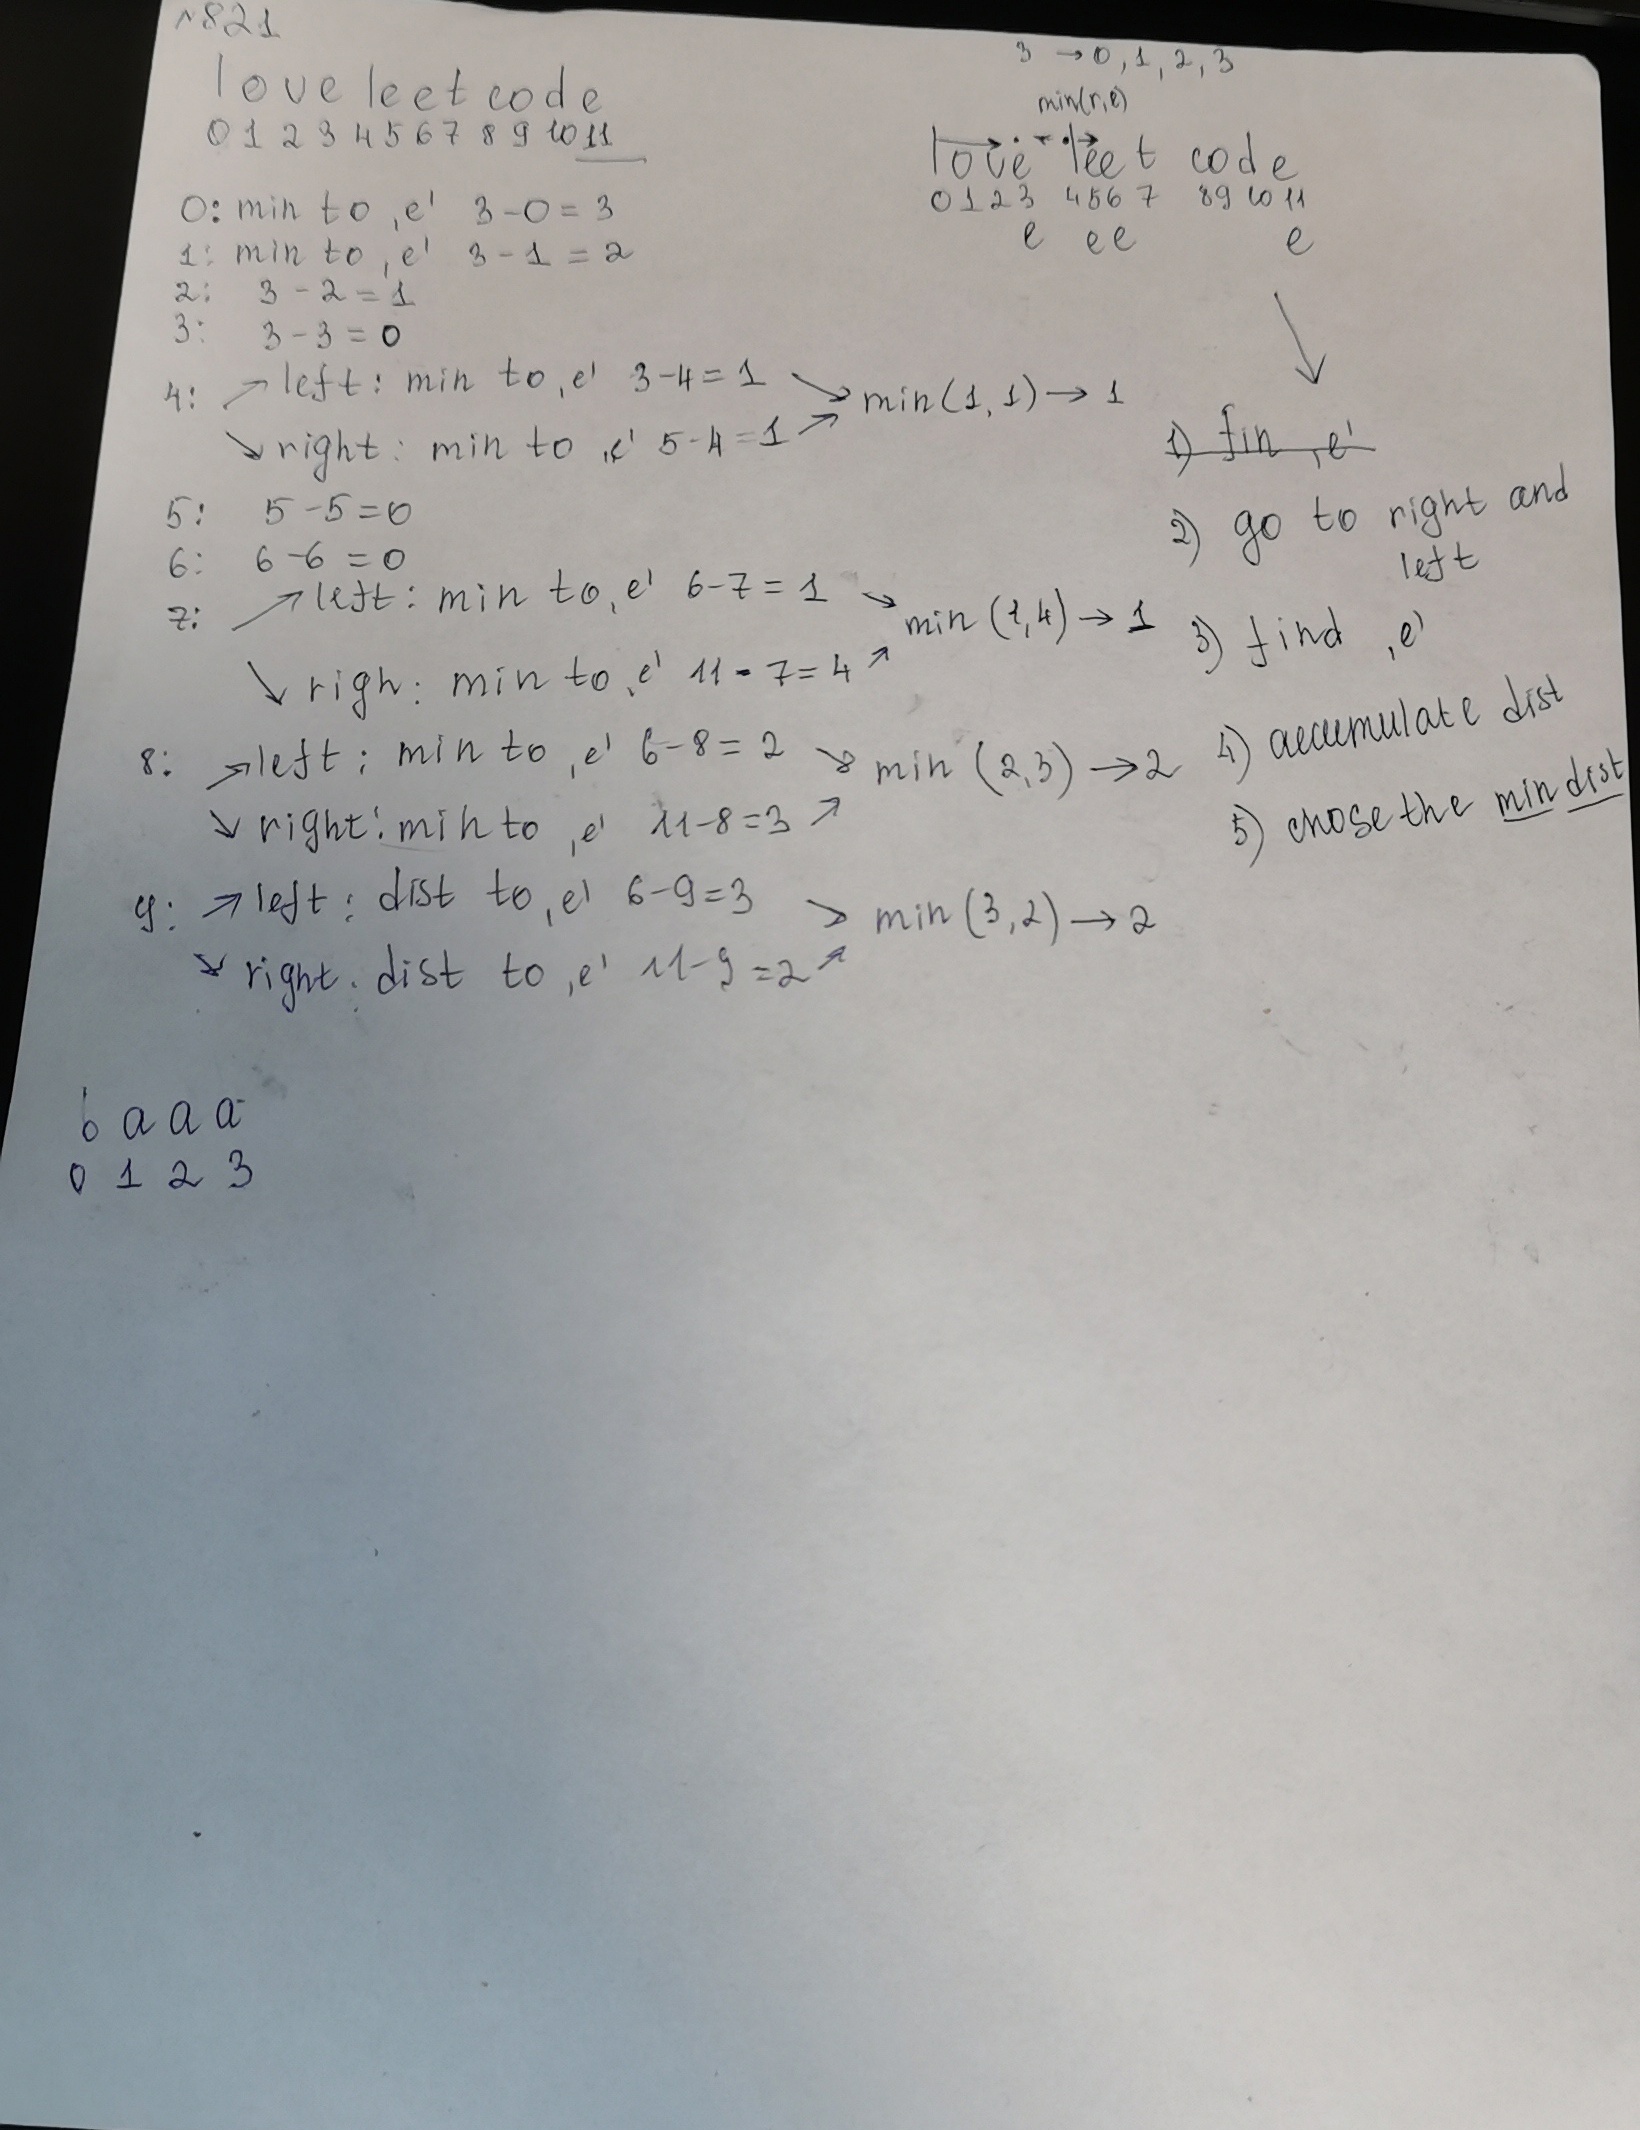 N821
love leet code
0 1 2 3 4 5 6 7 8 9 10 11
0: min to ,e' 3-0=3
1: min to ,e' 3-1=2
2: 3-2=1
3: 3-3=0
4: ↗ left: min to ,e' 3-4=1 ↘ min(1,1) → 1
↘ right: min to ,e' 5-4=1 ↗
5: 5-5=0
6: 6-6=0
7: ↗ left: min to ,e' 6-7=1 ↘ min (1,4) → 1
↘ righ: min to ,e' 11-7=4 ↗
8: ↗ left: min to ,e' 6-8=2 ↘ min (2,3) → 2
↘ right: min to ,e' 11-8=3 ↗
9: ↗ left: dist to ,e' 6-9=3 ↘ min (3,2) → 2
↘ right: dist to ,e' 11-9=2 ↗
b a a a
0 1 2 3
3 → 0, 1, 2, 3
min(r,e)
love leet code
0 1 2 3 4 5 6 7 8 9 10 11
e e e e
1) fin ,e'
2) go to right and
left
3) find ,e'
4) accumulate dist
5) chose the min dist